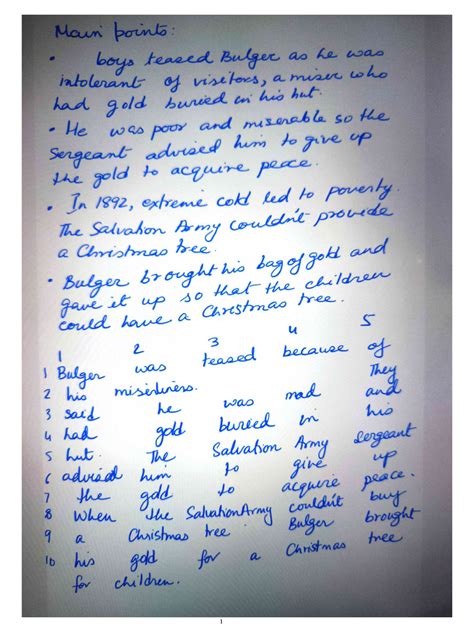 Main points:
• boys teased Bulger as he was
intolerant of visitors, a miser who
had gold buried in his hut.
• He was poor and miserable so the
Sergeant advised him to give up
the gold to acquire peace.
• In 1892, extreme cold led to poverty.
The Salvation Army couldn't provide
a Christmas tree.
• Bulger brought his bag of gold and
gave it up so that the children
could have a Christmas tree.
1 2 3 4 5
1 Bulger was teased because of
2 his miserliness. They
3 said he was mad and
4 had gold buried in his
5 hut. The Salvation Army Sergeant
6 advised him to give up
7 the gold to acquire peace.
8 When the Salvation Army couldn't buy
9 a Christmas tree Bulger brought
10 his gold for a Christmas tree
for children.
1